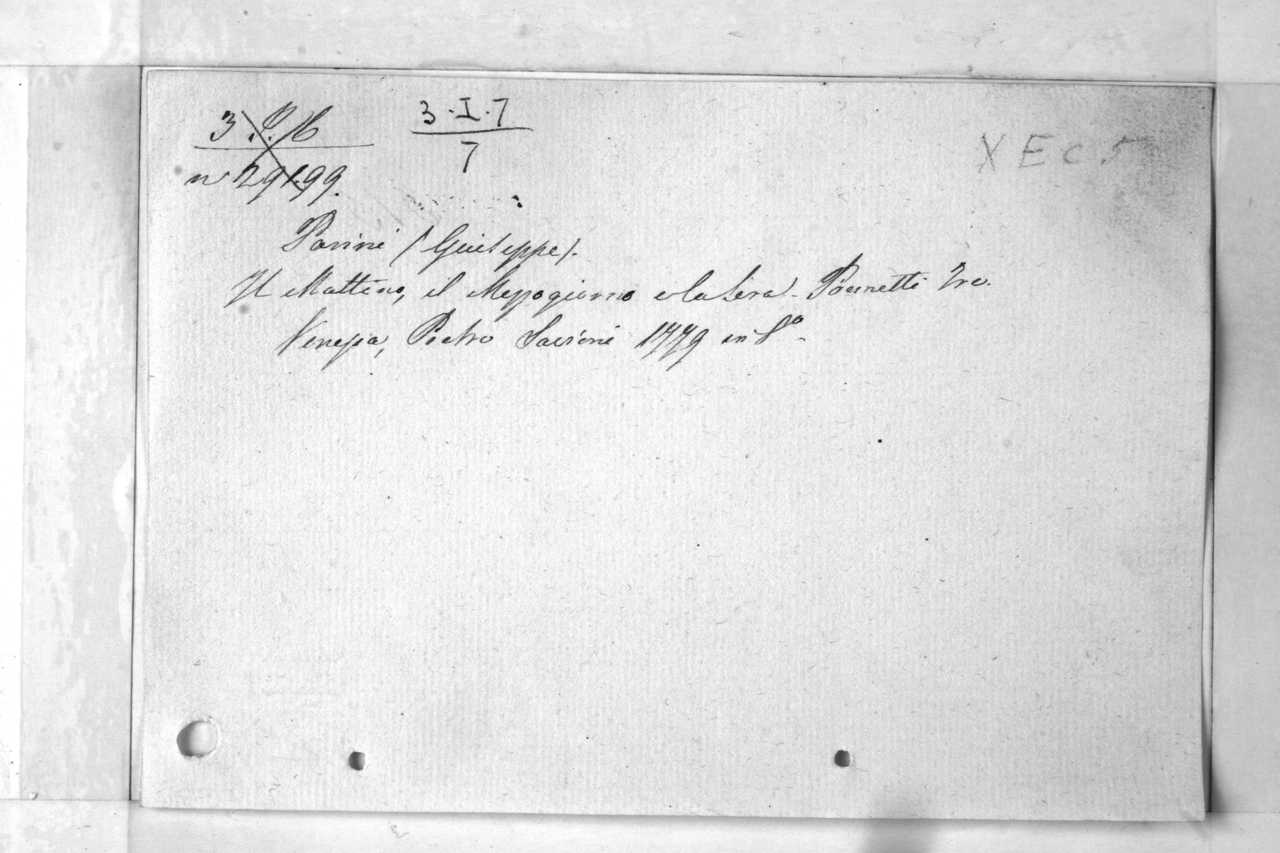 3. P. 16
3·I·7
7
X E c 5
n° 29199.
Parini (Giuseppe).
Il Mattino, il Mezzogiorno e la Sera - Poemetti Tre.
Venezia, Pietro Savioni 1779 in 8° -